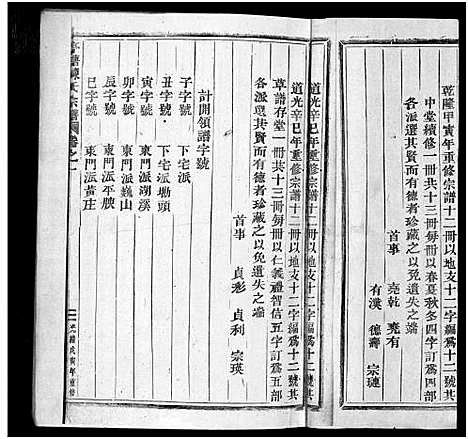 乾隆甲寅年重修宗譜十二冊以地支十二字編為十二號其
中堂續修一冊共十三冊每冊以春夏秋冬四字訂為四部
各派選其賢而有德者珍藏之以免遺失之端
首事 堯乾 堯有
有漢 德壽 宗璉
道光辛巳年重修宗譜十二冊以地支十二字編為十二號其
道光辛巳年重修宗譜十二冊以地支十二字編為十二號其
草譜存堂一冊共十三冊每冊以仁義禮智信五字訂為五部
各派選其賢而有德者珍藏之以免遺失之端
首事 貞彩 貞利 宗瑛
計開領譜字號
子字號 下宅派
丑字號 下宅派塘頭
寅字號 東門派湖溪
卯字號 東門派巍山
辰字號 東門派平腴
巳字號 東門派黃庄
氏宗譜
光緒戊寅年重修